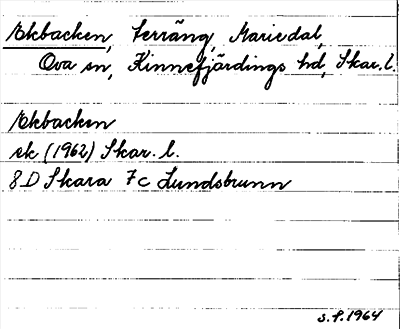 Ekbacken, terräng, Mariedal,
Ova sn, Kinnefjärdings hd, Skar. l.
Ekbacken
ek (1962) Skar. l.
8D Skara 7c Lundsbrunn
S.P. 1964